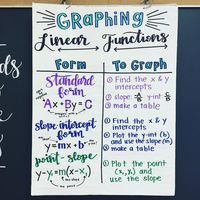 GRAPHING
Linear Functions
Form To Graph
standard form
Ax + By = C
① Find the x & y intercepts
② slope:
③ make a table
slope intercept form
y = mx + b
① Find the x & y intercepts
② Plot the y-int (b) and use slope
③ make a table
point-slope
y-y₁=m(x-x₁)
① Plot the point (x₁, y₁) and use the slope
ds